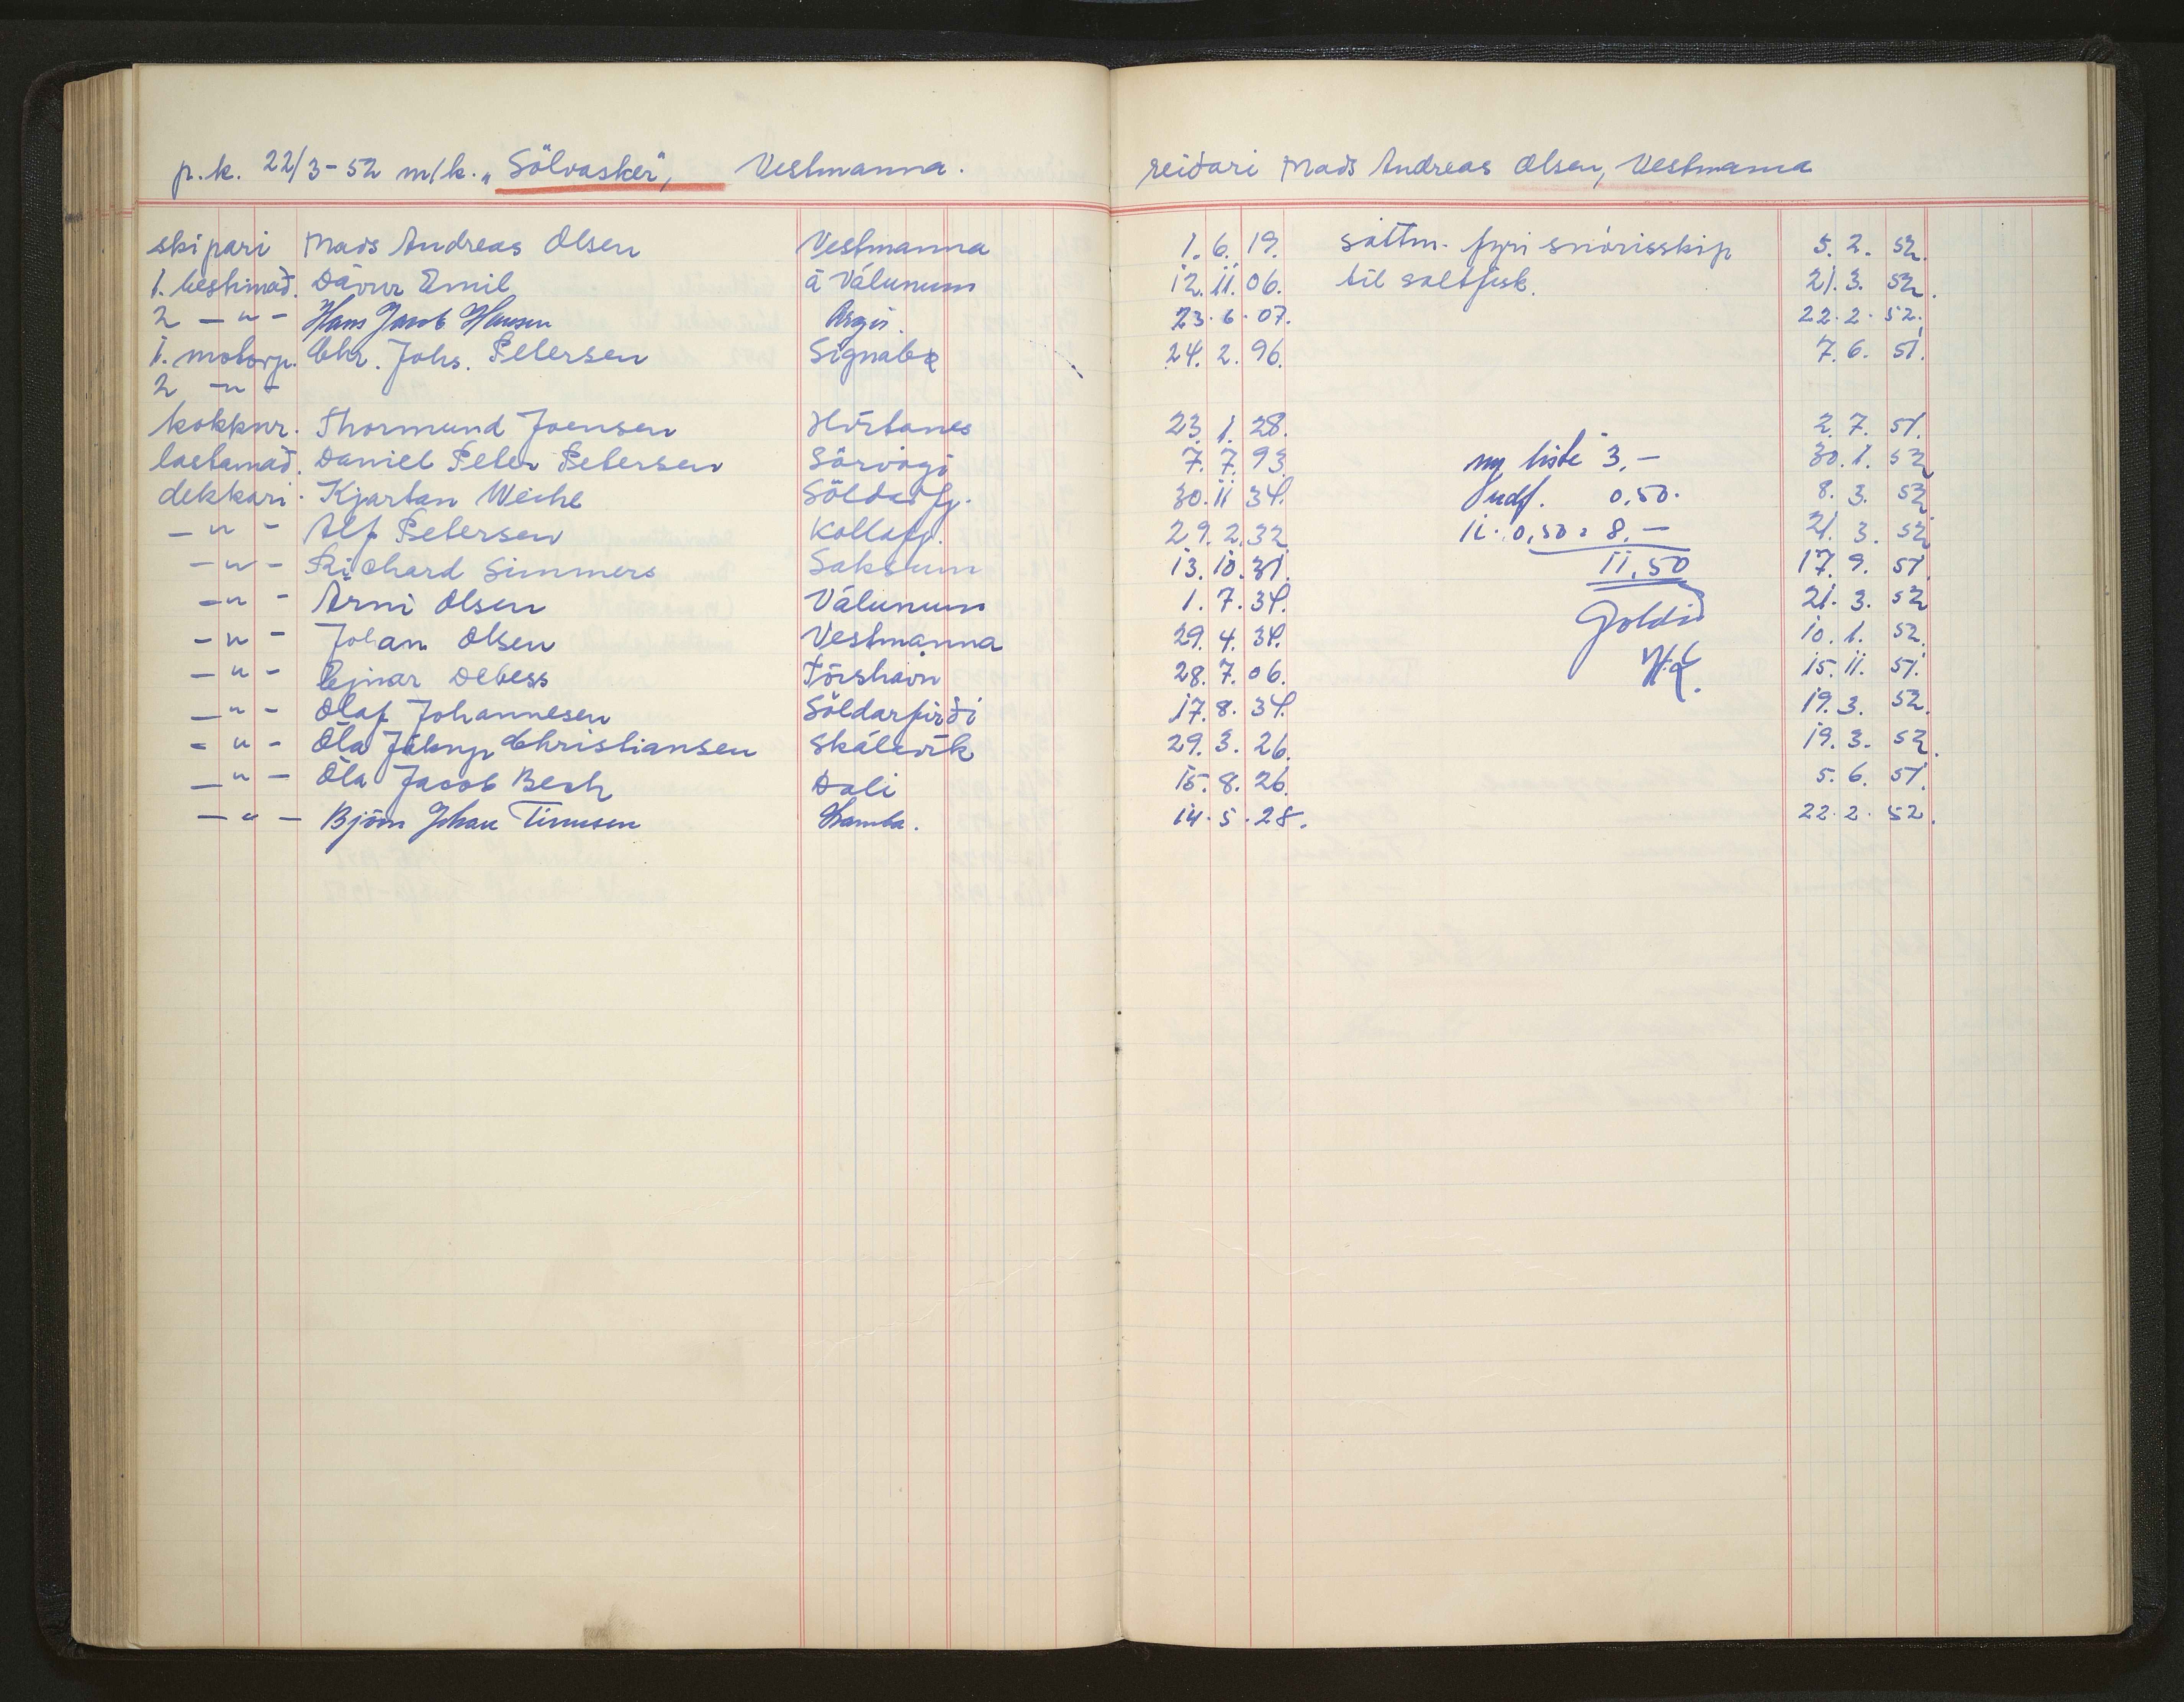 p.k. 22/3-52 m/k. „Sölvasker", Vestmanna. reiðari Mads Andreas Olsen, Vestmanna
skipari Mads Andreas Olsen Vestmanna 1. 6. 19. sáttm. fyri snórisskip 5. 2. 52.
1. bestmað. Dávur Emil á Válunum 12. 11. 06. til saltfisk. 21. 3. 52.
2 - " - Hans Jacob Hansen Argir. 23. 6. 07. 22. 2. 52.
1. motorp. Chr. Johs. Petersen Signabø 24. 2. 96. 7. 6. 51.
2 - " -
kokkur. Thormund Joensen Hvítanes 23. 1. 28. 2. 7. 51.
lastamað. Daniel Peter Petersen Sörvági 7. 7. 93. ny liste 3,- 30. 1. 52
dekkari. Kjartan Weihe Söldarfj. 30. 11 34. 0,50. 8. 3. 52
- " - Alf Petersen Kollafj. 29. 2. 32 11. 0,50 = 8,- 21. 3. 52
- " - Richard Simmers Saksun 13. 10. 31. 11,50 17. 9. 51.
- " - Árni Olsen Válunum 1. 7. 34. Goldið 21. 3. 52
- " - Johan Olsen Vestmanna 29. 4. 34. 10. 1. 52.
- " - Ejnar Debess Tórshavn 28. 7. 06. 15. 11. 51.
- " - Olaf Johannesen Söldarfirði 17. 8. 34. 19. 3. 52.
- " - Óla Jákup Christiansen Skálavík 29. 3. 26. 19. 3. 52.
- " - Óla Jacob Bech Dali 15. 8. 26. 5. 6. 51.
- " - Björn Johan Timusen Lamba. 14. 5. 28. 22. 2. 52.